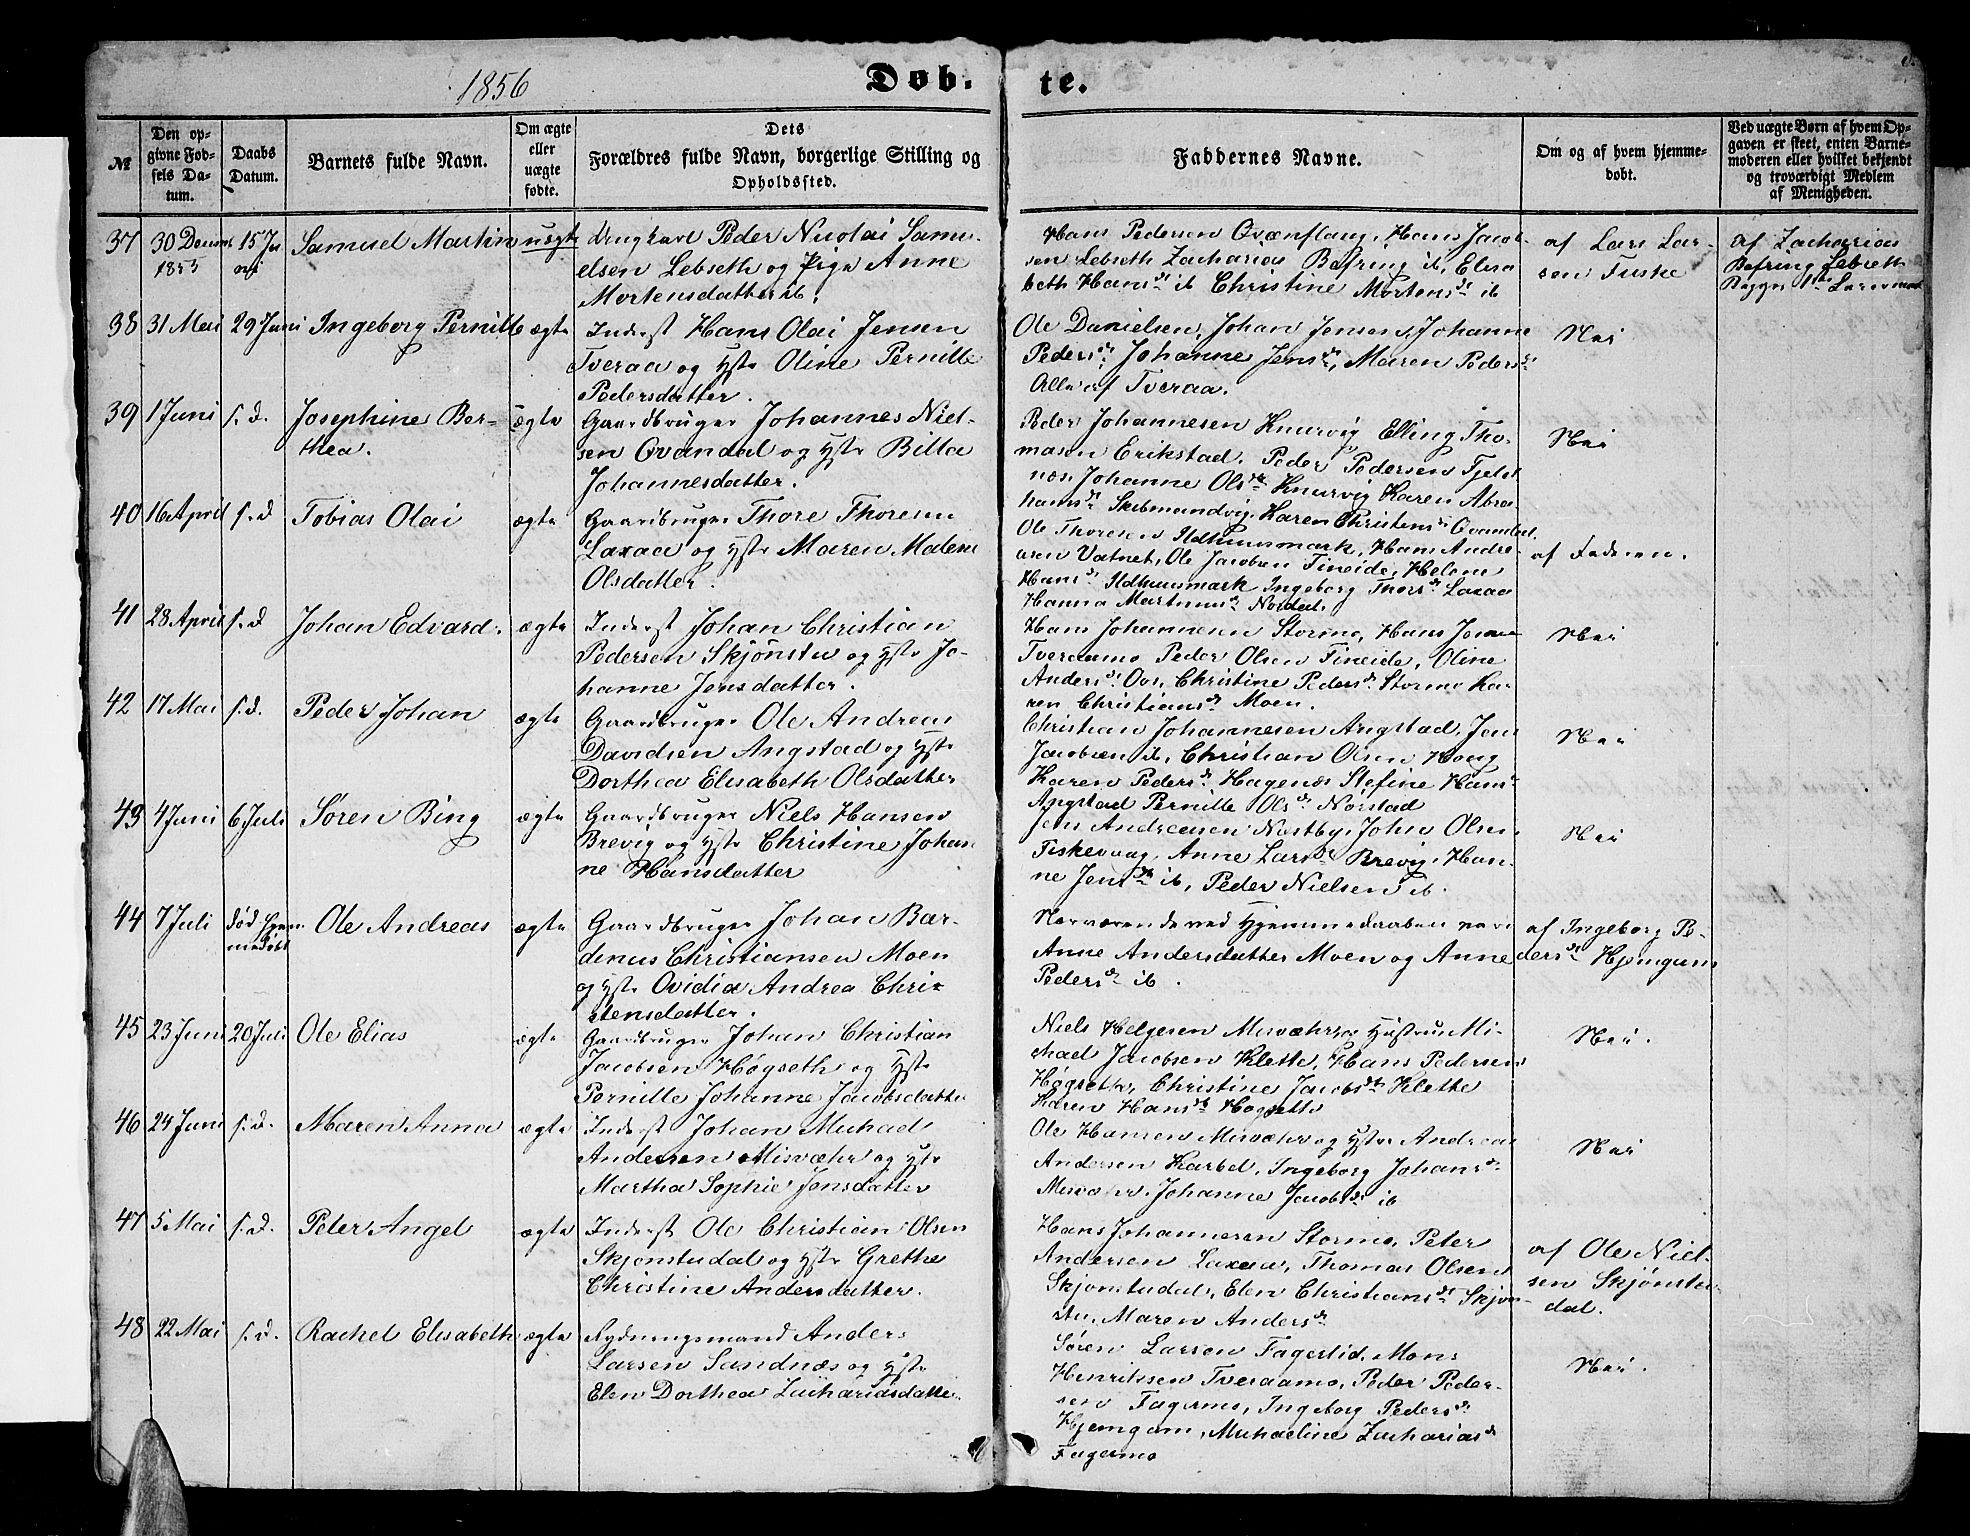 1856
Døb-
te.
№
Den op-
givne Fød-
sels Da-
tum.
Daabs
Datum.
Barnets fulde Navn.
Om ægte
eller
uægte
fødte.
Dets
Forældres fulde Navn, borgerlige Stilling og
Opholdssted.
Faddernes Navne.
Om og af hvem hjemme-
døbt.
Ved uægte Børn af hvem Op-
gaven er skeet, enten Barne-
moderen eller hvilket bekjendt
og troværdigt Medlem
af Menigheden.
37
30 Decmr
1855
15 Ju
ni
Samuel Martin
uægte
Ungkarl Peder Nicolai Samu-
elsen Lebseth og Pige Anne
Mortensdatter ib.
Hans Pedersen Qvænflaag, Hans Jacob-
sen Lebseth Zacharias Befring ib, Elisa
beth Hansdr ib Christine Mortensdr ib
af Lars Lar-
sen Fuske
af Zacharias
Befring Lebseth
38
31 Mai
29 Juni
Ingeborg Pernille
ægte
Inderst Hans Olai Jensen
Tveraa og Hstr Oline Pernille
Pedersdatter.
Ole Danielsen, Johan Jensen, Johanne
Pedersdr, Johanne Jensdr, Maren Pedersdr
Alle af Tveraa.
Nei
39
1 Juni
s. d.
Josephine Ber-
thea.
ægte
Gaardbruger Johannes Niel-
sen Qvandal og Hstr Billa
Johannesdatter.
Peder Johannesen Knurvig Elling Tho-
masen Erikstad. Peder Pedersen Tjeld
næs, Johanne Olsdr Knurvig Karen Abra-
hamsdr Skibmandvig, Karen Christensdr Qvandal,
Nei
40
16 April
s. d
Tobias Olai
ægte
Gaardbruger Thore Thoresen
Laxaa og Hstr Maren Malene
Olsdatter.
Ole Thoresen Ildhuusmark, Hans Andre-
asen Vatnet, Ole Jacobsen Fineide, Helene
Hansdr Ildhuusmark Ingeborg Thorsdr Laxaa
Hanna Martinusdr Nordal.
af Faderen.
41
28 April
s. d
Johan Edvard.
ægte
Inderst Johan Christian
Pedersen Skjönstu og Hstr Jo-
hanne Jensdatter.
Hans Johannesen Stormo, Hans Jensen
Tveraamo Peder Olsen Fineide, Oline
Andersdr Oos, Christine Pedersdr Stormo Ka-
ren Christiansdr Moen.
Nei
42
17 Mai
s. d.
Peder Johan
ægte
Gaardbruger Ole Andreas
Davidsen Angstad og Hstr
Dorthea Elisabeth Olsdatter
Christian Johannesen Angstad, Jens
Jacobsen ib, Christian Olsen Houg
Karen Pedersdr Hagenæs Stefine Hansdr
Angstad Pernille Olsdr Nørstad
Nei
43
4 Juni
6 Juli
Sören Bing
ægte
Gaardbruger Niels Hansen
Brevig og Hstr Christine Johan-
ne Hansdatter
Jens Andreasen Næstby, John Olsen
Fiskevaag, Anne Larsdr Brevig, Han-
ne Jensdr ib, Peder Nielsen ib.
Nei
44
7 Juli
død hjem-
medøbt
Ole Andreas
ægte
Gaardbruger Johan Bar-
dinus Christiansen Moen
og Hstr Ovidia Andrea Chri-
stensdatter.
Nærværende ved Hjemmedaaben vare
Anne Andersdatter Moen og Anne
Pedersdr ib.
af Ingeborg Pe-
dersdr Hjemgam
45
23 Juni
20 Juli
Ole Elias
ægte
Gaardbruger Johan Christian
Jacobsen Høgseth og Hstr
Pernille Johanne Jacobsdatter
Niels Helgesen Misvæhr og Hustru Mi-
chael Jacobsen Klette, Hans Pedersen
Høgseth, Christine Jacobsdr Klette
Karen Hansdr Høgseth
Nei.
46
24 Juni
s. d.
Maren Anna
ægte
Inderst Johan Michael
Andersen Misvæhr og Hstr
Martha Sophie Jensdatter
Ole Hansen Misvæhr og Hstr Andreas
Andersen Karbøl, Ingeborg Johansdr
Misvæhr, Johanne Jacobsdr ib
Nei
47
5 Mai
s. d.
Peter Angel
ægte
Inderst Ole Christian Olsen
Skjonstudal og Hstr Grethe
Christine Andersdatter.
Hans Johannesen Stormo, Peter
Andersen Laxaa, Thomas Olsen
Skjonstudal, Elen Christiansdr Skjon-
stu, Maren Andersdr
af Ole Niel-
sen Skjönstu-
dal.
48
22 Mai
s. d.
Rachel Elisabeth
ægte
Rydningsmand Anders
Larsen Sandnæs og Hstr
Elen Dorthea Zachariasdatter.
Søren Larsen Fagerlid, Mons
Henriksen Tveraamo, Peder Peder-
sen Fagermo, Ingeborg Pedersdr
Hjemgam, Michaeline Zachariasdr
Fagermo
Nei.